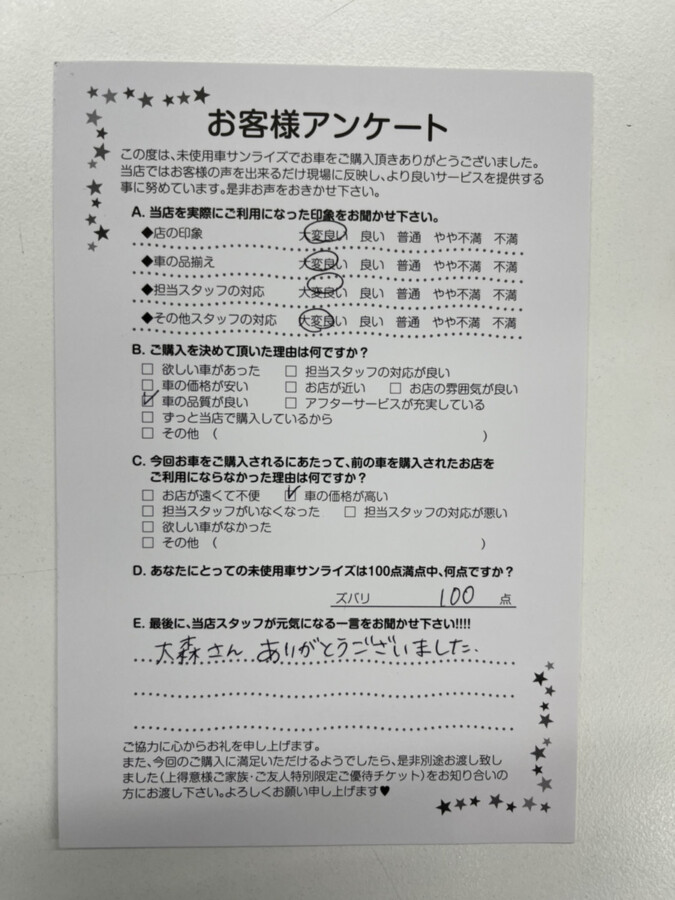 お客様アンケート
この度は、未使用車サンライズでお車をご購入頂きありがとうございました。
当店ではお客様の声を出来るだけ現場に反映し、より良いサービスを提供する
事に努めています。是非お声をおきかせ下さい。
A. 当店を実際にご利用になった印象をお聞かせ下さい。
◆店の印象 大変良い 良い 普通 やや不満 不満
◆車の品揃え 大変良い 良い 普通 やや不満 不満
◆担当スタッフの対応 大変良い 良い 普通 やや不満 不満
◆その他スタッフの対応 大変良い 良い 普通 やや不満 不満
B. ご購入を決めて頂いた理由は何ですか？
□ 欲しい車があった □ 担当スタッフの対応が良い
□ 車の価格が安い □ お店が近い □ お店の雰囲気が良い
☑ 車の品質が良い □ アフターサービスが充実している
□ ずっと当店で購入しているから
□ その他 ( )
C. 今回お車をご購入されるにあたって、前の車を購入されたお店を
ご利用にならなかった理由は何ですか？
□ お店が遠くて不便 ☑ 車の価格が高い
□ 担当スタッフがいなくなった □ 担当スタッフの対応が悪い
□ 欲しい車がなかった
□ その他 ( )
D. あなたにとっての未使用車サンライズは100点満点中、何点ですか？
ズバリ 100 点
E. 最後に、当店スタッフが元気になる一言をお聞かせ下さい!!!!
大森さん ありがとうございました.
ご協力に心からお礼を申し上げます。
また、今回のご購入に満足いただけるようでしたら、是非別途お渡し致し
ました(上得意様ご家族・ご友人特別限定ご優待チケット)をお知り合いの
方にお渡し下さい。よろしくお願い申し上げます♥